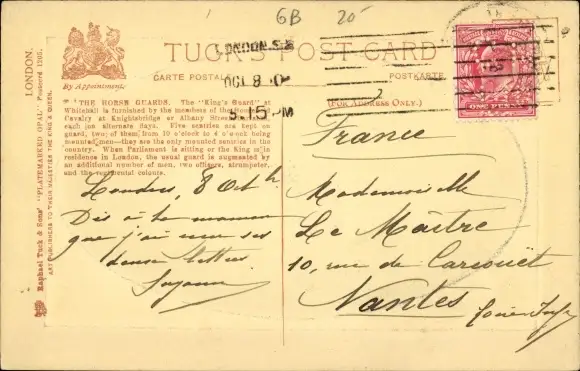 6B 20-
LONDON.
TUCK'S POST CARD
By Appointment.
CARTE POSTALE
POSTKARTE
LONDON.S.E
OCT 8 0
5.15PM
(FOR ADDRESS ONLY.)
"THE HORSE GUARDS. The "King's Guard" at
Whitehall is furnished by the members of the Household
Cavalry at Knightsbridge or Albany Street Barracks
each on alternate days. Five sentries are kept on
guard, two of them, from 10 o'clock to 4 o'clock being
mounted men—they are the only mounted sentries in the
country. When Parliament is sitting or the King is in
residence in London, the usual guard is augmented by
an additional number of men, two officers, trumpeter,
and the regimental colours.
Londres, 8 Oct
Dis à ta maman
que j'ai reçu ses
deux lettres
Suzanne
France
Mademoiselle
Le Maître
10, rue de Carcouët
Nantes
ONE PENNY
Raphael Tuck & Sons' "PLATEMARKED OPAL" Postcard
ART PUBLISHERS TO THEIR MAJESTIES THE KING & QUEEN.